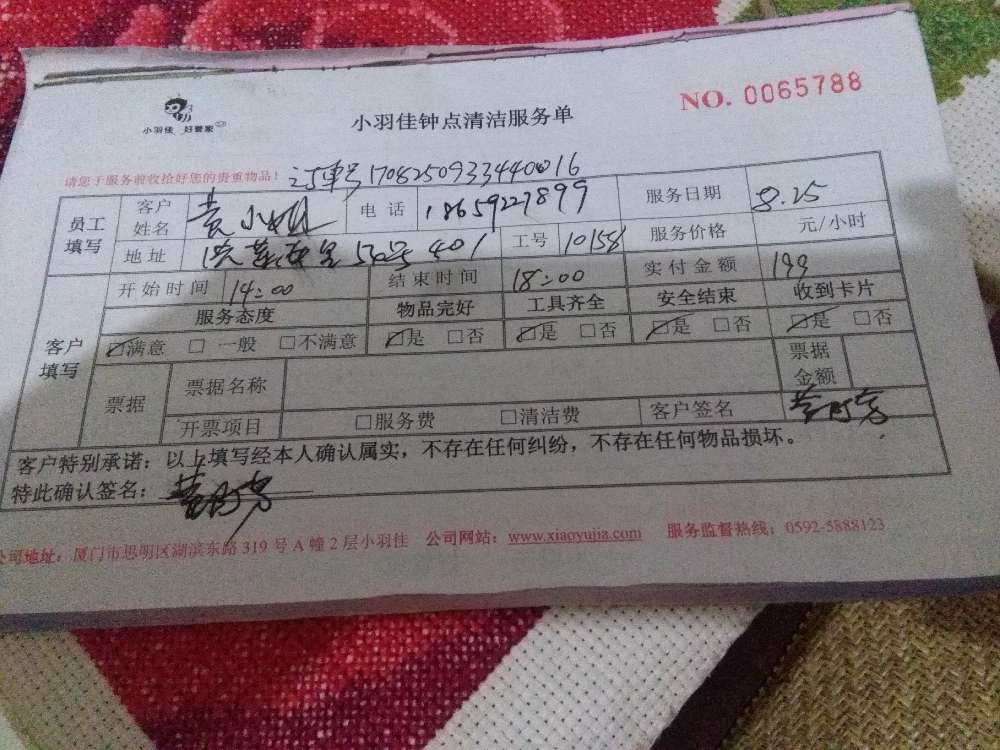 小羽佳 好管家
小羽佳钟点清洁服务单
NO. 0065788
请您于服务前收拾好您的贵重物品! 订单号1708250933440016
员工填写 客户姓名 黄小姐 电话 18659227899 服务日期 8.25
地址 莲 401 工号 10158 服务价格 元/小时
客户填写 开始时间 14:00 结束时间 18:00 实付金额 199
服务态度 物品完好 工具齐全 安全结束 收到卡片
☑满意 □一般 □不满意 ☑是 □否 ☑是 □否 ☑是 □否 ☑是 □否
票据 票据名称 票据金额
开票项目 □服务费 □清洁费 客户签名
客户特别承诺:以上填写经本人确认属实,不存在任何纠纷,不存在任何物品损坏。
特此确认签名:
公司地址:厦门市思明区湖滨东路 319 号 A 幢 2 层小羽佳 公司网站:www.xiaoyujia.com 服务监督热线:0592-5888123